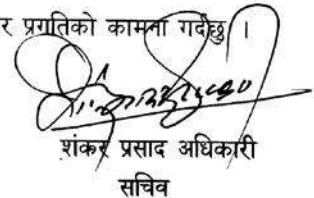 र प्रगतिको कामना गर्दछु ।
शंकर प्रसाद अधिकारी
सचिव